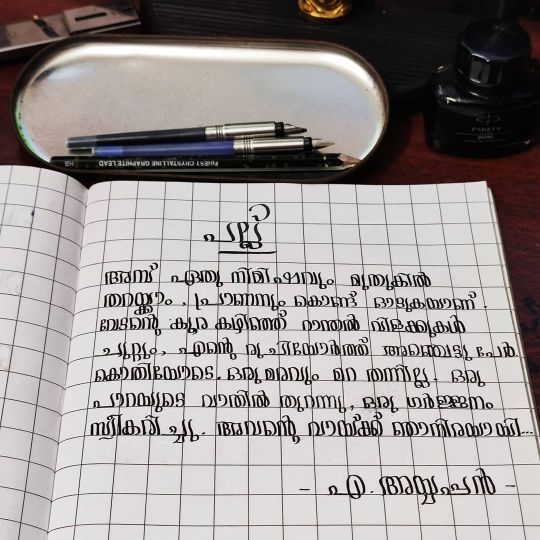 HB FINEST CRYSTALLINE GRAPHITE LEAD
PARKER
QUINK
പല്ല്
അമ്പ് ഏതു നിമിഷവും മുതുകിൽ
തറയ്ക്കാം. പ്രാണനും കൊണ്ട് ഓടുകയാണ്.
വേടന്റെ കൂര കഴിഞ്ഞ് റാന്തൽ വിളക്കുകൾ
ചുറ്റും. എന്റെ രുചിയോർത്ത് അഞ്ചെട്ടു പേർ
കൊതിയോടെ. ഒരു മരവും മറ തന്നില്ല. ഒരു
പാറയുടെ വാതിൽ തുറന്നു, ഒരു ഗർജ്ജനം
സ്വീകരിച്ചു. അവന്റെ വായ്ക്ക് ഞാനിരയായി...
- എ. അയ്യപ്പൻ -